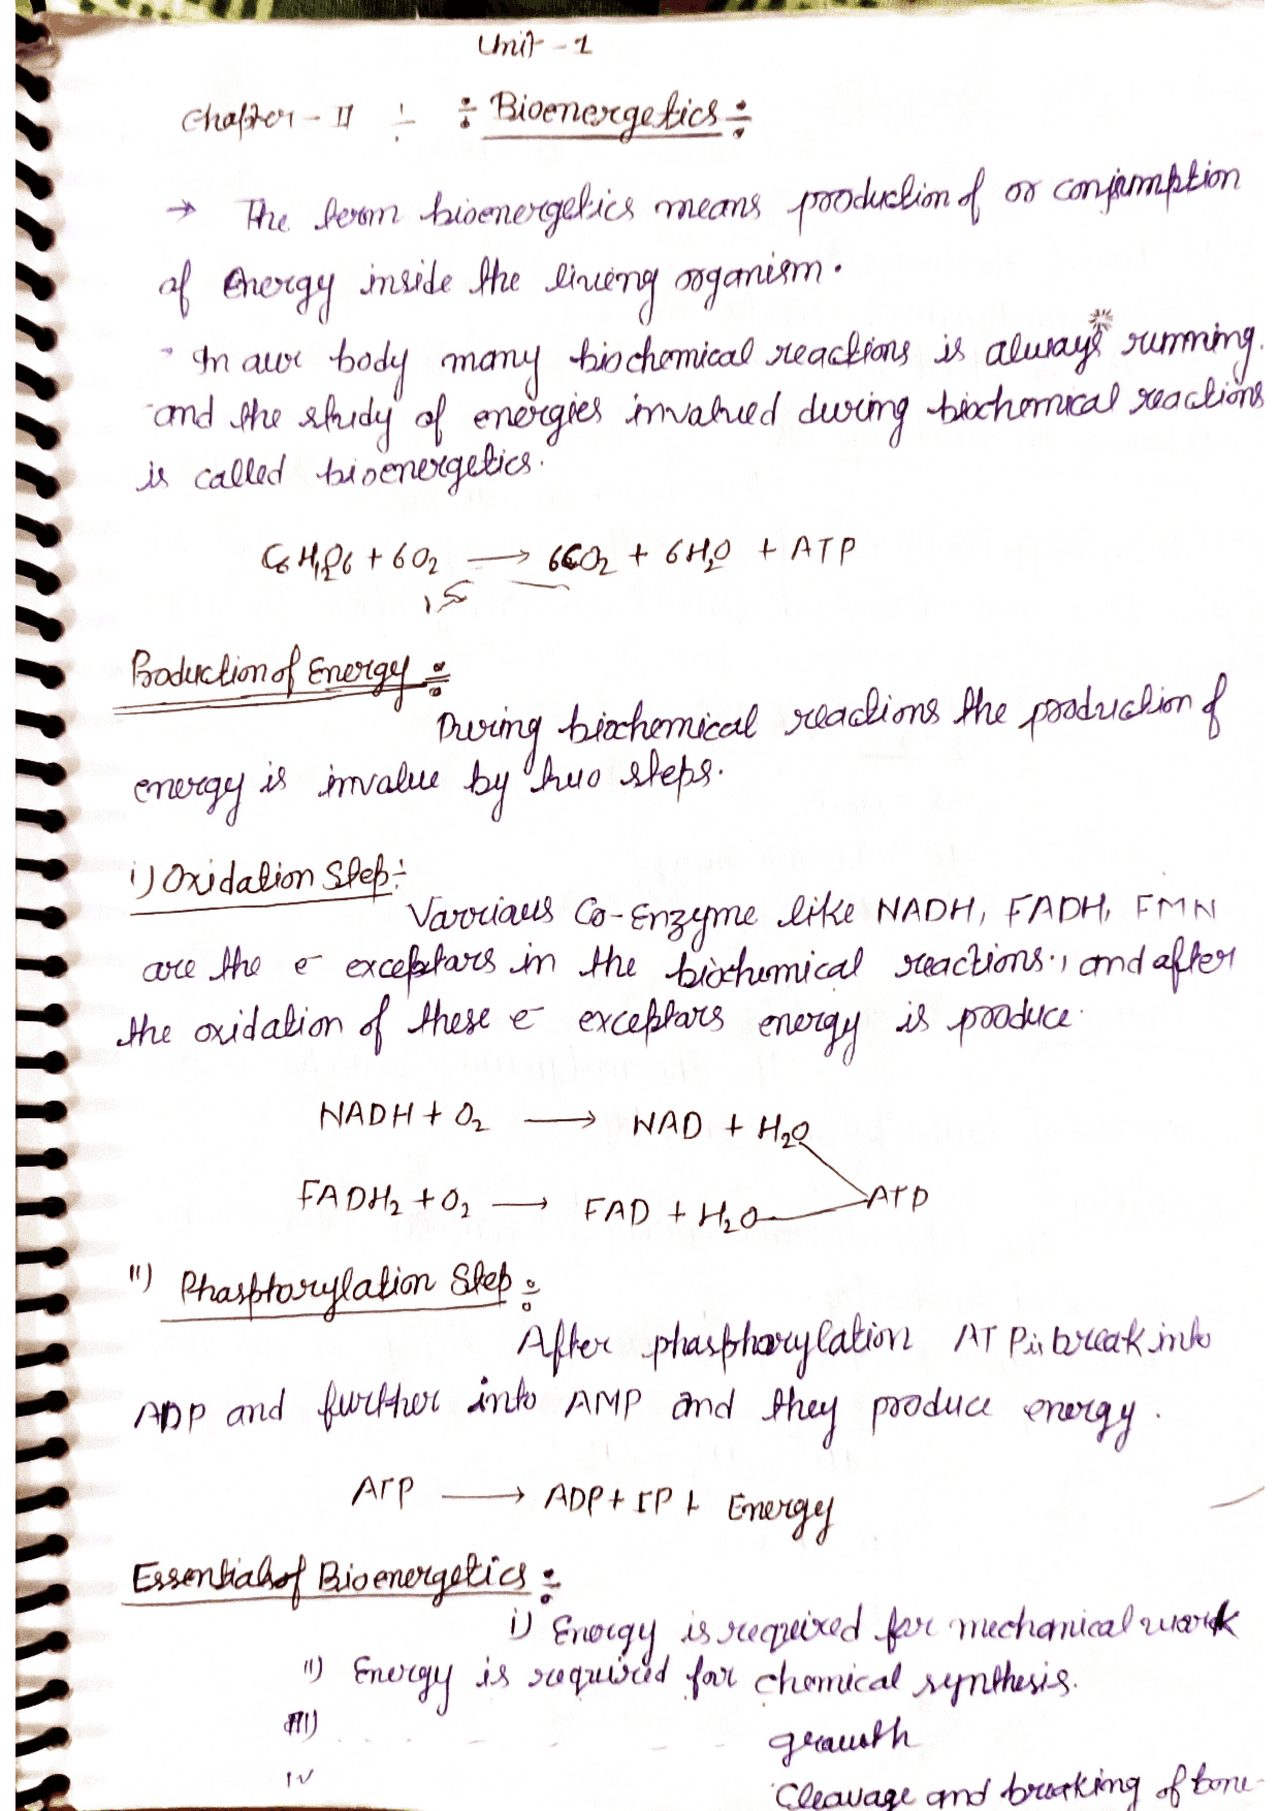 Unit - 1
Chapter - II ÷ ÷ Bioenergetics ÷
→ The term bioenergetics means production of or conjumption
of Energy inside the living organism.
In our body many biochemical reactions is always running.
and the study of energies invalued during biochemical reactions
is called bioenergetics.
C6H12O6 + 6O2 ⟶ 6CO2 + 6H2O + ATP
Production of Energy ÷
During biochemical reactions the production of
energy is invalue by two steps.
i) Oxidation Step:-
Varrious Co-Enzyme like NADH, FADH, FMN
are the e⁻ exceptors in the biochemical reactions., and after
the oxidation of these e⁻ exceptors energy is produce.
NADH + O2 ⟶ NAD + H2O
FADH2 + O2 ⟶ FAD + H2O ATP
ii) Phasphorylation Step ÷
After phasphorylation ATP is break into
ADP and further into AMP and they produce energy.
ATP ⟶ ADP + IP + Energy
Essentials of Bioenergetics ÷
i) Energy is required for mechanical work
ii) Energy is required for chemical synthesis.
iii) - - - - growth
iv Cleavage and breaking of bone-